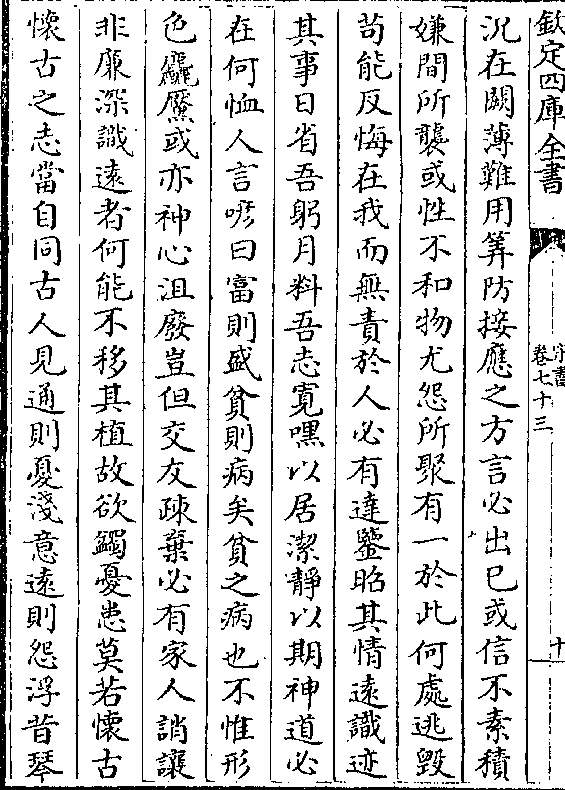 欽定四庫全書
宋書
卷七十三
十
況在闕薄難用筭防接應之方言必出己或信不素積
嫌間所襲或性不和物尤怨所聚有一於此何處逃毀
苟能反悔在我而無責於人必有達鑒昭其情遠識迹
其事日省吾躬月料吾志寬嘿以居潔靜以期神道必
在何恤人言喭曰富則盛貧則病矣貧之病也不惟形
色麤黶或亦神心沮廢豈但交友疎棄必有家人誚讓
非廉深識遠者何能不移其植故欲蠲憂患莫若懷古
懷古之志當自同古人見通則憂淺意遠則怨浮昔琴